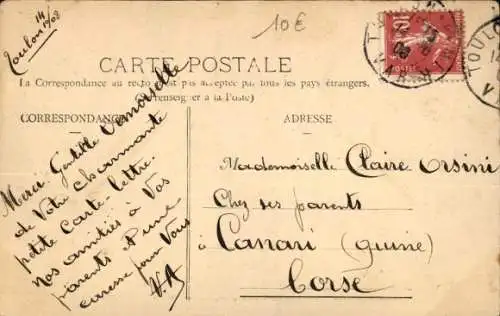 Toulon 14/08
10€
CARTE POSTALE
La Correspondance au recto n'est pas acceptée par tous les pays étrangers.
(Se renseigner à la Poste)
CORRESPONDANCE
ADRESSE
Merci Gentille Demoiselle
de Votre charmante
petite Carte-lettre.
nos amitiés à Vos
parents & une
caresse pour Vous
V.A
Mademoiselle Claire Orsini
Chez ses parents
à Canari (guine)
Corse
10
TOULON
TOULON
VAR